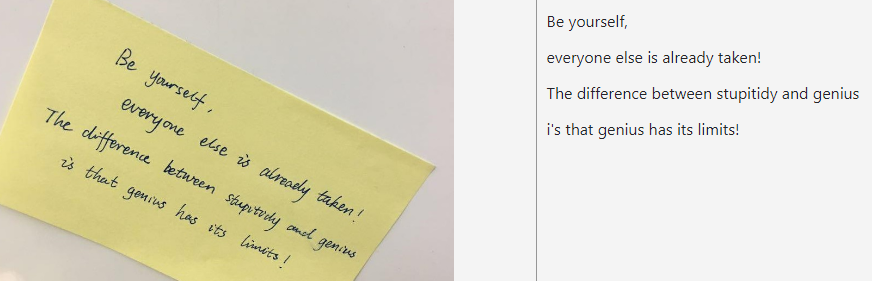 Be yourself,
everyone else is already taken!
The difference between stupitody and genius
is that genius has its limits!
Be yourself,
everyone else is already taken!
The difference between stupitidy and genius
i's that genius has its limits!